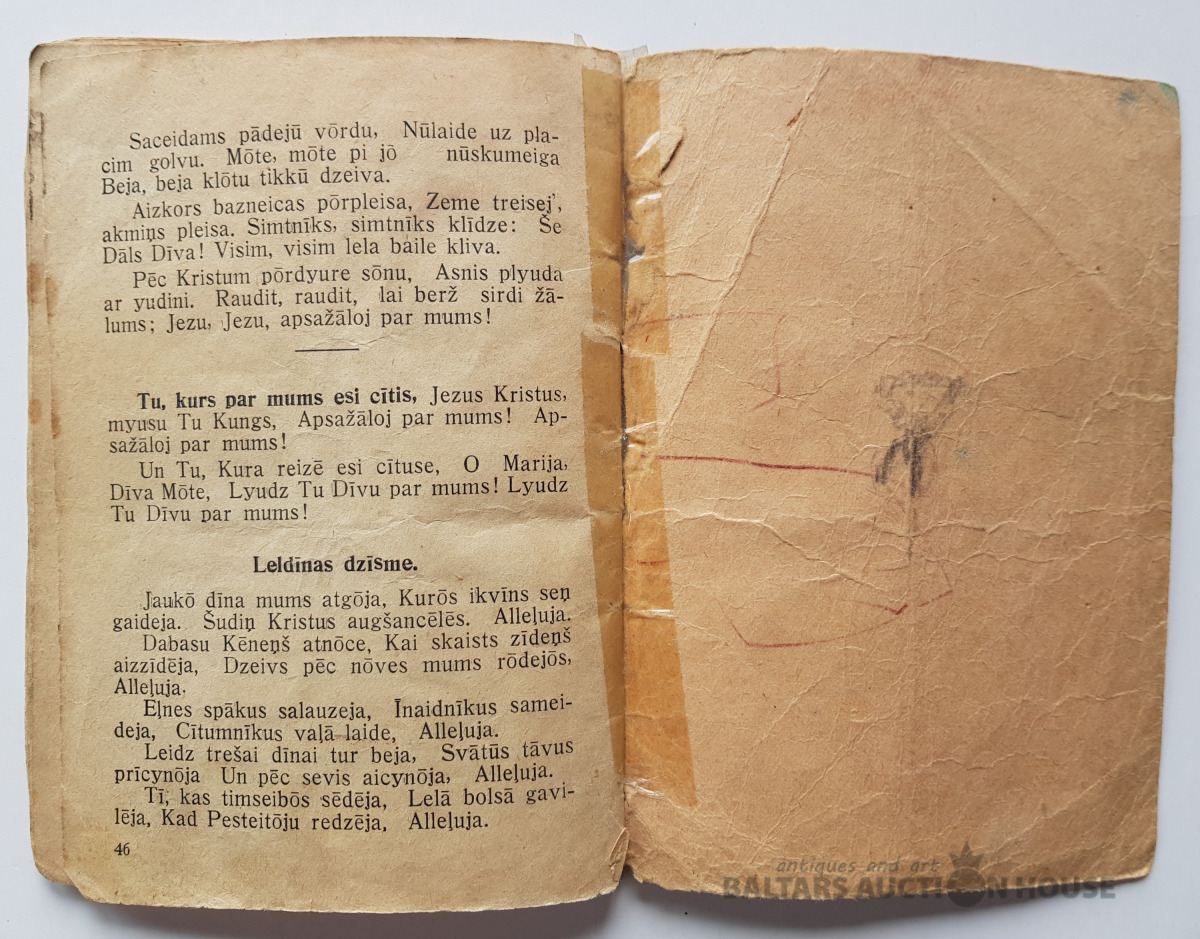 Saceidams pādejū vōrdu, Nūlaide uz pla-
cim golvu. Mōte, mōte pi jō nūskumeiga
Beja, beja klōtu tikkū dzeiva.
Aizkors bazneicas pōrpleisa, Zeme treisej',
akmiņs pleisa. Simtnīks, simtnīks klīdze: Še
Dāls Dīva! Visim, visim lela baile kliva.
Pēc Kristum pōrdyure sōnu, Asnis plyuda
ar yudini. Raudit, raudit, lai berž sirdi žā-
lums; Jezu, Jezu, apsažāloj par mums!
Tu, kurs par mums esi cītis, Jezus Kristus,
myusu Tu Kungs, Apsažāloj par mums! Ap-
sažāloj par mums!
Un Tu, Kura reizē esi cītuse, O Marija,
Dīva Mōte, Lyudz Tu Dīvu par mums! Lyudz
Tu Dīvu par mums!
Leldīnas dzīsme.
Jaukō dīna mums atgōja, Kurōs ikvīns seņ
gaideja. Šudiņ Kristus augšancēlēs. Alleļuja.
Dabasu Kēneņš atnōce, Kai skaists zīdeņš
aizzīdēja, Dzeivs pēc nōves mums rōdejōs,
Alleļuja.
Eļnes spākus salauzeja, Īnaidnīkus samei-
deja, Cītumnīkus vaļā laide, Alleļuja.
Leidz trešai dīnai tur beja, Svātūs tāvus
prīcynōja Un pēc sevis aicynōja, Alleļuja.
Tī, kas timseibōs sēdēja, Lelā bolsā gavi-
lēja, Kad Pesteitōju redzēja, Alleļuja.
46
antiques and art
BALTARS AUCTION HOUSE